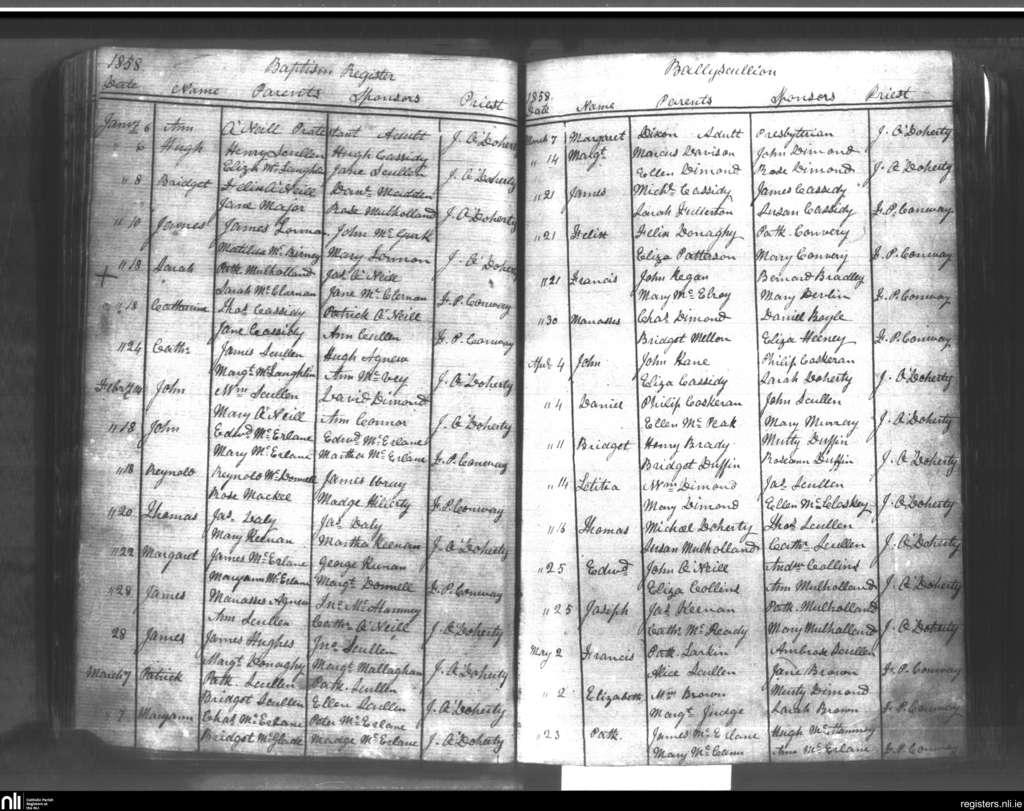 1858
Baptism Register
Date Name Parents Sponsors Priest
Jany 6 Ann O'Neill Protestant Adult J. O'Doherty
6 Hugh Henry Scullen Hugh Cassidy
Eliza McLaughlin Jane Scullen J. O'Doherty
" 8 Bridget Felix O'Neill Danl. Madden
Jane Major Rose Mulholland J. O'Doherty
" 10 James James Lorman John McGurk
Matilda McBirney Mary Lorman J. O'Doherty
" 18 Sarah Patk Mulholland Jas. O'Neill
Sarah McClernan Jane McClernan F. P. Conway
" 18 Catharine Thos Cassidy Patrick O'Neill
Jane Cassidy Ann Scullen F. P. Conway
" 24 Cathr. James Scullen Hugh Agnew
Margt. McLaughlin Ann McVey J. O'Doherty
Febry 14 John Wm Scullen David Dimond
Mary O'Neill Ann Connor J. O'Doherty
" 18 John Edwd. McErlane Edwd. McErlane
Mary McErlane Martha McErlane F. P. Conway
" 18 Reynold Reynold McDonnell James
Rose Mackel Madge Hilerty F. P. Conway
" 20 Thomas Jas. Daly Jas. Daly
Mary Keenan Martha Keenan J. O'Doherty
" 22 Margaret James McErlane George Keenan
Maryann McErlane Margt. Donnell F. P. Conway
" 28 James Manasses Agnew Jno. McHanney
Ann Scullen Cathr. O'Neill J. O'Doherty
28 James James Hughes Jno. Scullen
Margt. Donaghy Margt. Mallaghan J. O'Doherty
March 7 Patrick Patk. Scullen Patk. Scullen
Bridget Scullen Ellen Scullen J. O'Doherty
" 7 Maryann Chas McErlane Peter McErlane
Bridget McGlade Madge McErlane J. O'Doherty
Ballyscullion
1858.
Date Name Parents Sponsors Priest
March 7 Margaret Dixon Adult Presbyterian J. O'Doherty
" 14 Margt. Marcus Davison John Dimond
Ellen Dimond Rose Dimond J. O'Doherty
" 21 James Michl. Cassidy James Cassidy
Sarah Fullerton Susan Cassidy F. P. Conway
" 21 Felix Felix Donaghy Patk. Convery
Eliza Patterson Mary Convery F. P. Conway
" 21 Francis John Kegan Bernard Bradley
Mary McElroy Mary Derlin F. P. Conway
" 30 Manasses Chas Dimond Daniel Boyle
Bridget Mellon Eliza Heeney F. P. Conway
Apr. 4 John John Kane Philip Coskeran
Eliza Cassidy Sarah Doherty J. O'Doherty
" 4 Daniel Philip Coskeran John Scullen
Ellen McPeak Mary Murray J. O'Doherty
" 11 Bridget Henry Brady Duffin
Bridget Duffin Roseann Duffin J. O'Doherty
" 14 Letitia Wm Dimond Jas. Scullen
Mary Dimond Ellen McCloskey J. O'Doherty
" 16 Thomas Michael Doherty Thos Scullen
Susan Mulholland Cathr. Scullen J. O'Doherty
" 25 Edwd. John O'Neill Andw. Collins
Eliza Collins Ann Mulholland J. O'Doherty
" 25 Joseph Jas. Keenan Patk. Mulholland
Cathr. McReady Mary Mulholland J. O'Doherty
May 2 Francis Patk. Larkin Ambrose Scullen
Alice Scullen Jane Brown F. P. Conway
" 2 Elizabeth Wm Brown Dimond
Margt. Judge Sarah Brown F. P. Conway
" 23 Patk. James McErlane Hugh McHanney
Mary McCann Ann McErlane F. P. Conway
nli
Catholic Parish
Registers at
the NLI
registers.nli.ie